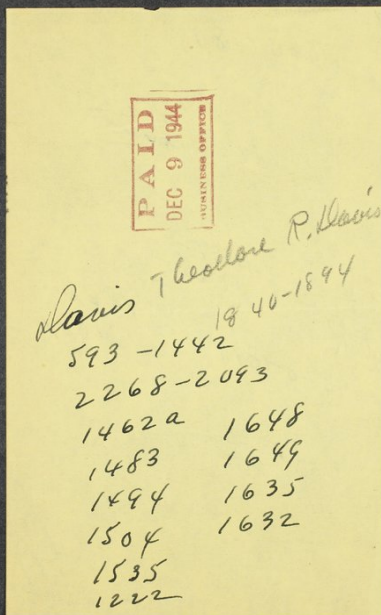 PAID
DEC 9 1944
BUSINESS OFFICE
Davis Theodore R. Davis
1840-1894
593-1442
2268-2093
1462a 1648
1483 1649
1494 1635
1504 1632
1535
1222